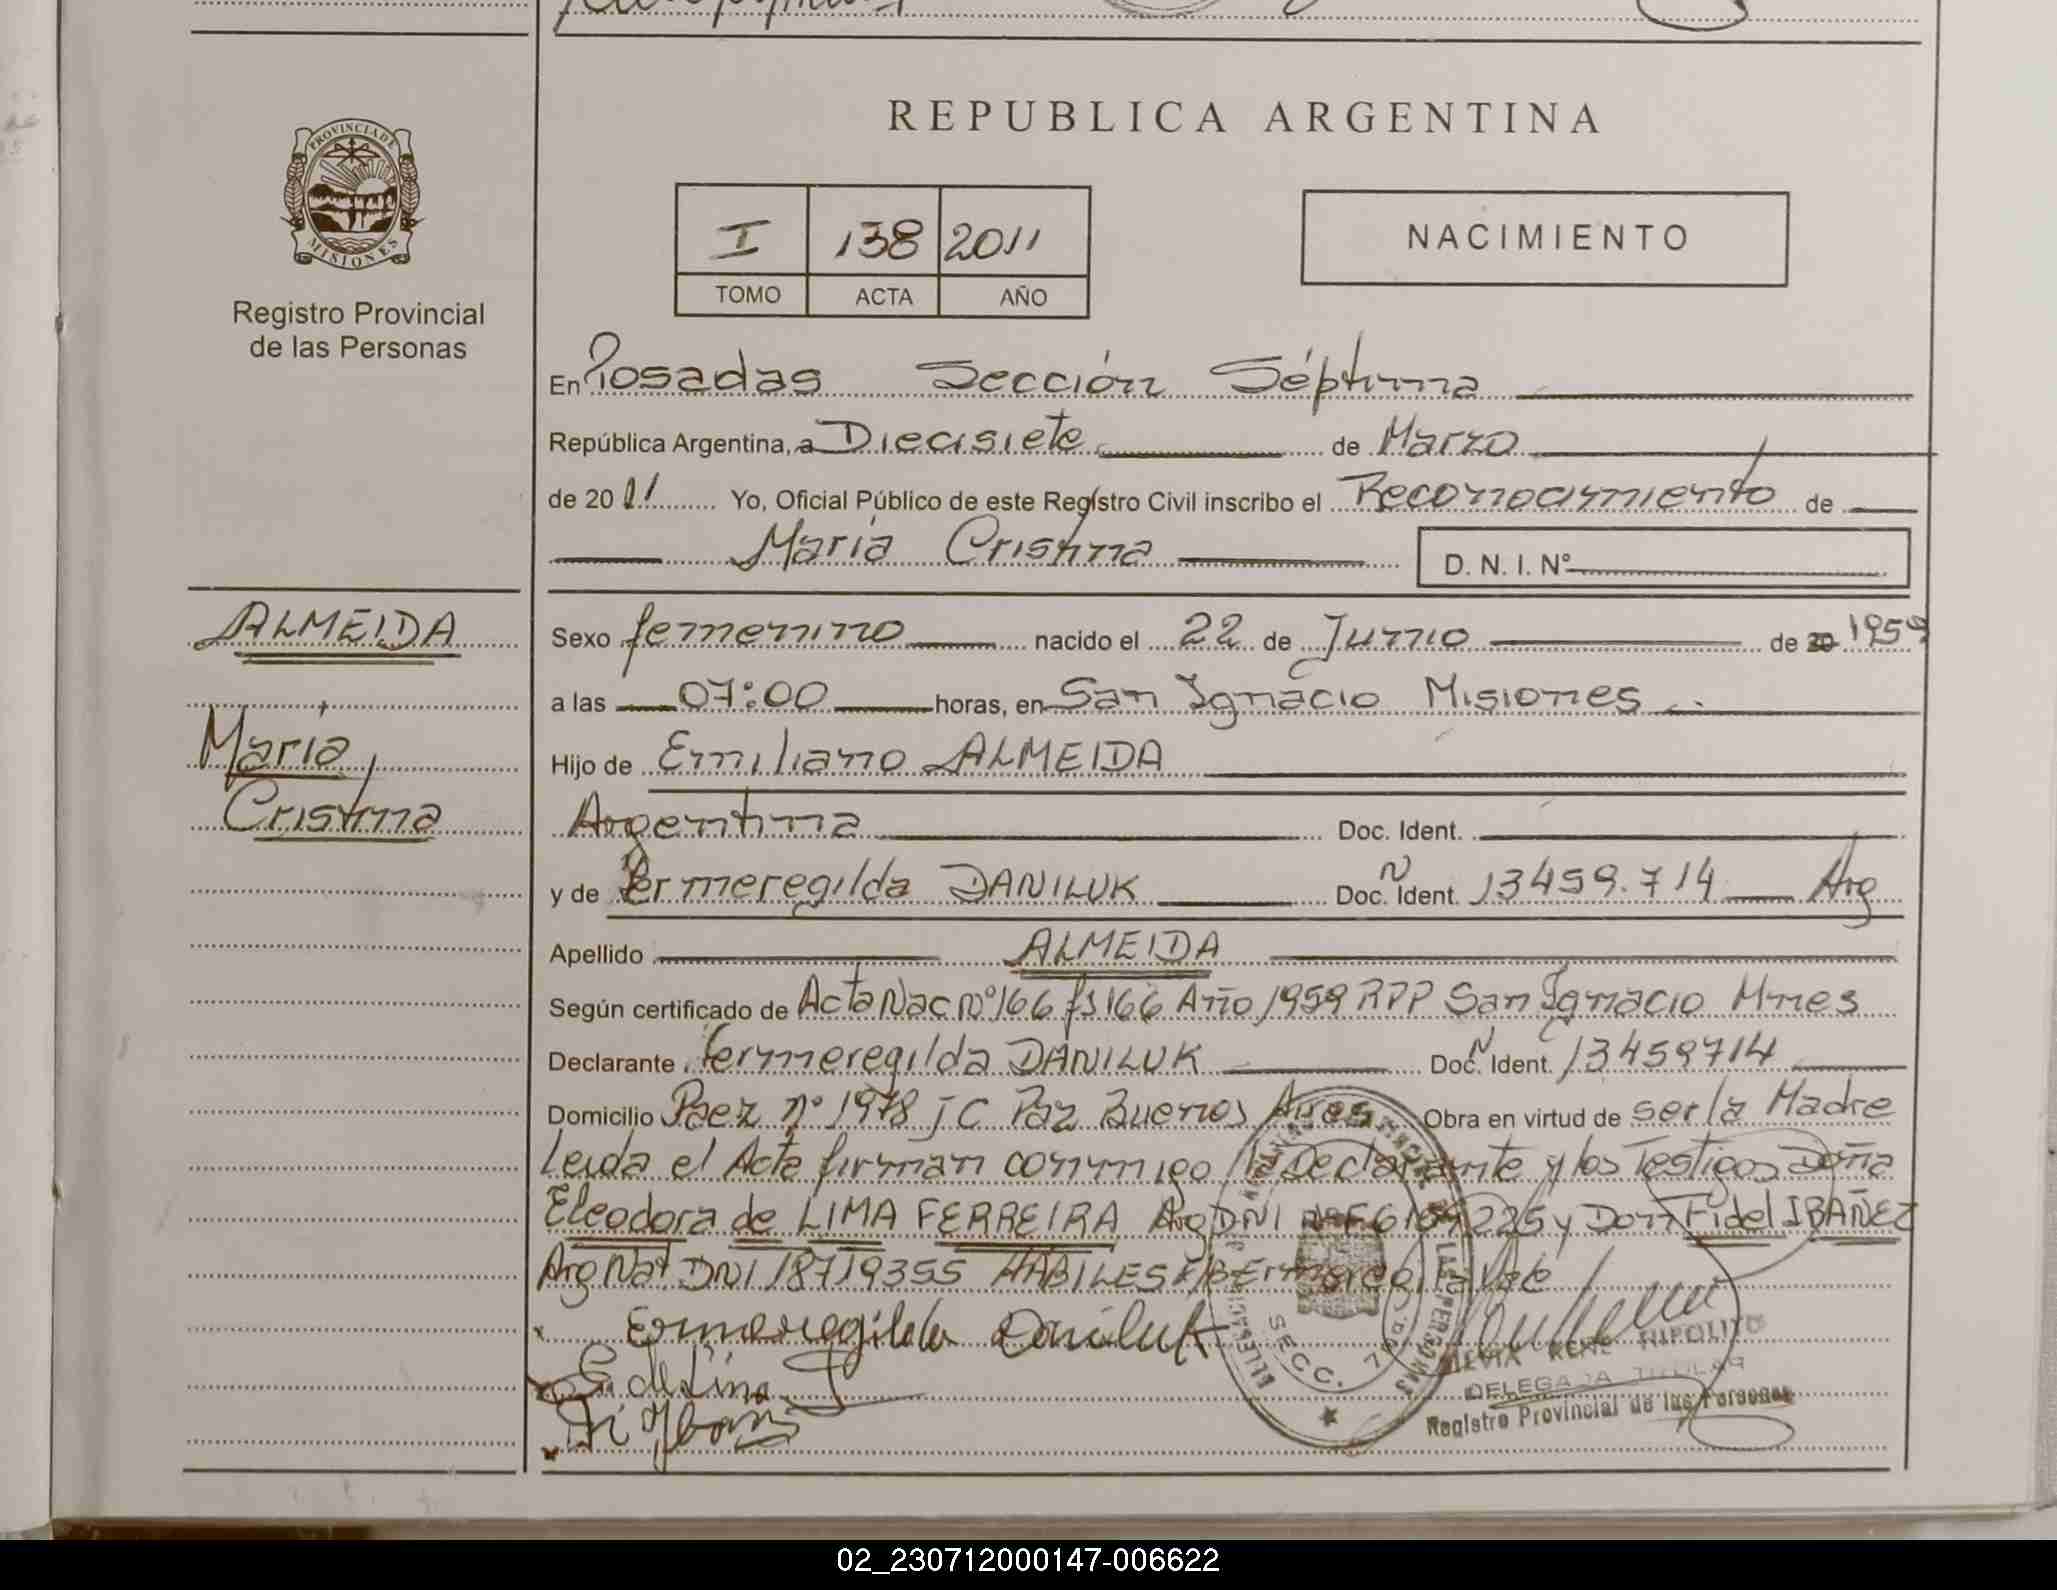 PROVINCIA DE
MISIONES
Registro Provincial
de las Personas
REPUBLICA ARGENTINA
I 138 2011
TOMO ACTA AÑO
NACIMIENTO
En Posadas Sección Séptima
República Argentina, a Diecisiete de Marzo
de 20 11 Yo, Oficial Público de este Registro Civil inscribo el Reconocimiento de
María Cristina
D. N. I. Nº
ALMEIDA
María
Cristina
Sexo femenino nacido el 22 de Junio de 20 1959
a las 07:00 horas, en San Ignacio Misiones
Hijo de Emiliano ALMEIDA
Argentina Doc. Ident.
y de Ermeregilda DANILUK Doc. N Ident. 13459.714 Arg
Apellido ALMEIDA
Según certificado de Acta Nac Nº 166 fs 166 Año 1959 RPP San Ignacio Mnes
Declarante Ermeregilda DANILUK Doc. N Ident. 13459714
Domicilio Paez nº 1978 J C Paz Buenos Aires Obra en virtud de ser la Madre
Leida el Acta firman conmigo la Declarante y los Testigos Doña
Eleodora de LIMA FERREIRA Arg DNI Nº F 6189225 y Don Fidel IBAÑEZ
Arg Nat DNI 18719355 HABILES Ermeregilda Vale
Ermeregilda Daniluk
E de Lima
Fi Ybañ
SECC. 7
RENE HIPOLITO
DELEGADA TITULAR
Registro Provincial de las Personas
02_230712000147-006622